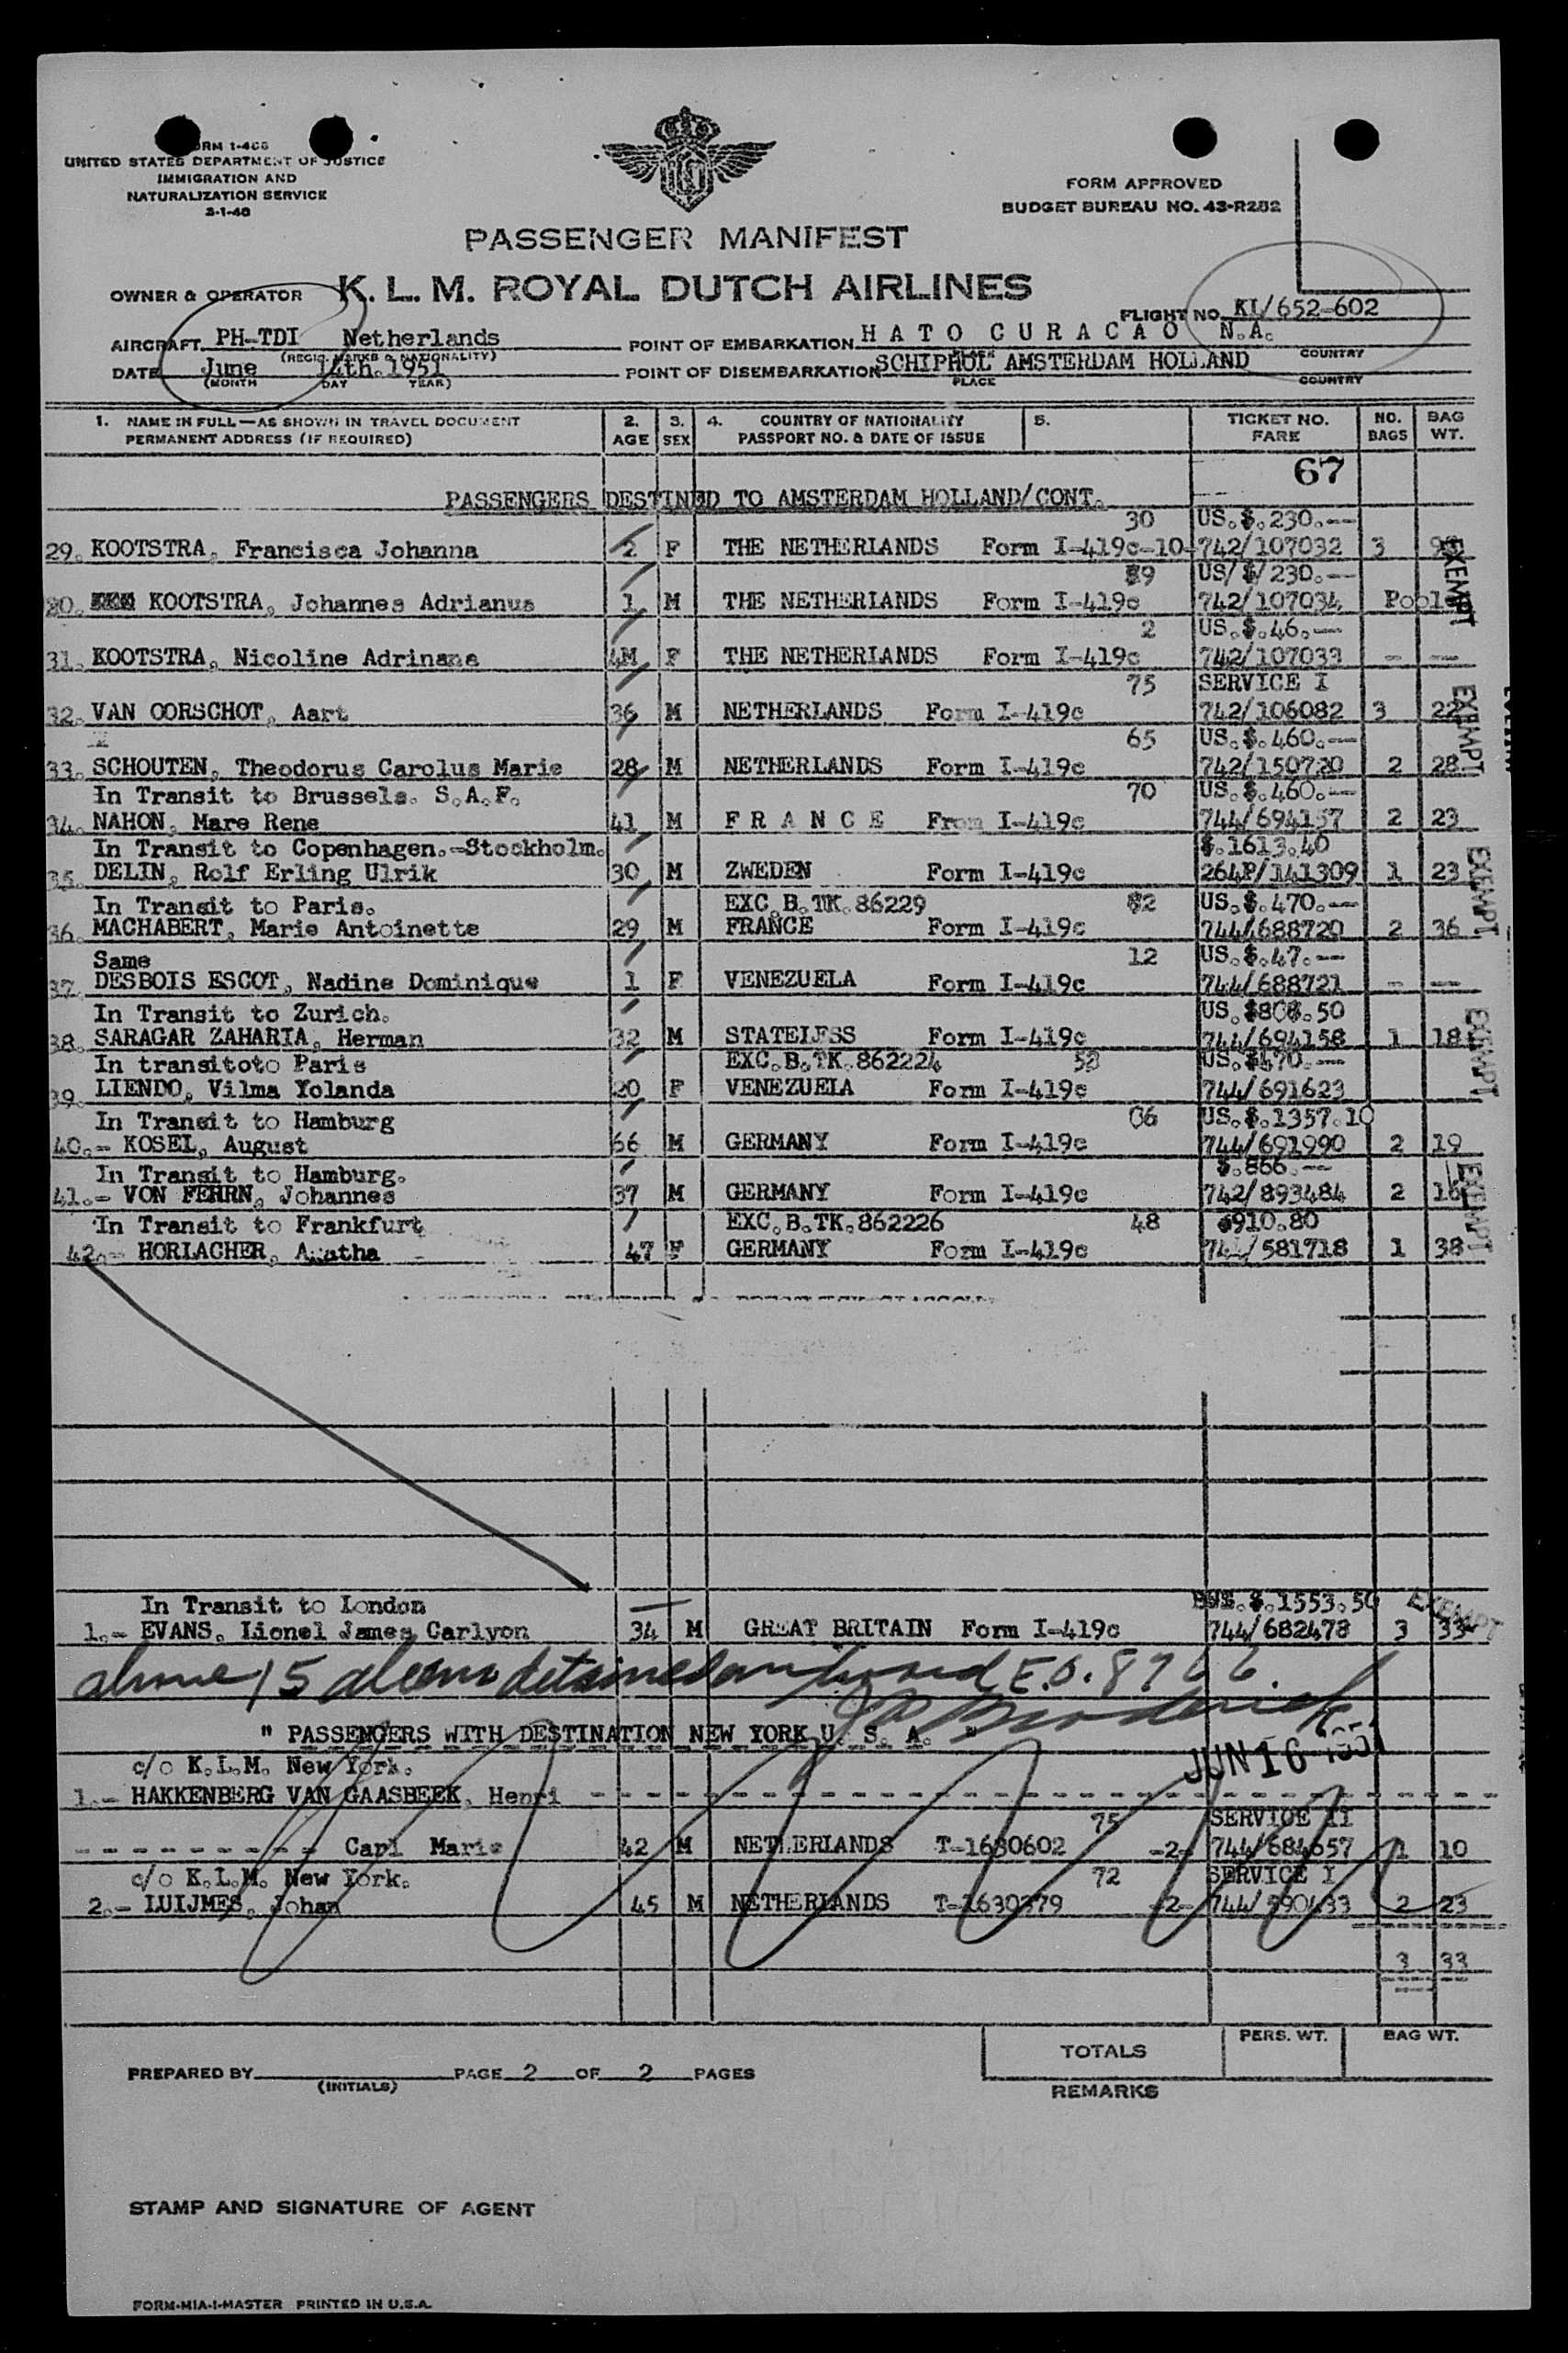 FORM APPROVED
UNITED STATES DEPARTMENT OF JUSTICE
IMMIGRATION AND
NATURALIZATION SERVICE
BUDGET BUREAU NO. 43-R252
PASSENGER MANIFEST
OWNER & OPERATOR K. L. M. ROYAL DUTCH AIRLINES
FLIGHT NO. KL/652-602
AIRCRAFT PH-TDI Netherlands POINT OF EMBARKATION H A T O C U R A C A O N.A.
(REGIS. MARKS & NATIONALITY) COUNTRY
DATE June 14th.1951 POINT OF DISEMBARKATION SCHIPHOL AMSTERDAM HOLLAND
(MONTH DAY YEAR) PLACE COUNTRY
1. NAME IN FULL—AS SHOWN IN TRAVEL DOCUMENT 2. 3. 4. COUNTRY OF NATIONALITY 5. TICKET NO. NO. BAG
PERMANENT ADDRESS (IF REQUIRED) AGE SEX PASSPORT NO. & DATE OF ISSUE FARE BAGS WT.
67
PASSENGERS DESTINED TO AMSTERDAM HOLLAND/CONT.
30 US.$.230.--
29. KOOTSTRA, Francisca Johanna 2 F THE NETHERLANDS Form I-419c-10-742/107032 3
EXEMPT
US/$/230.--
KOOTSTRA, Johannes Adrianus 1 M THE NETHERLANDS Form I-419c 742/107034
2 US.$.46.--
31. KOOTSTRA, Nicoline Adrinana 4M F THE NETHERLANDS Form I-419c 742/107033 - --
75 SERVICE I
32. VAN OORSCHOT, Aart 36 M NETHERLANDS Form I-419c 742/106082 3 22
EXEMPT
65 US.$.460.--
33. SCHOUTEN, Theodorus Carolus Marie 28 M NETHERLANDS Form I-419c 742/150720 2 28
In Transit to Brussels. S.A.F. 70 US.$.460.--
34. NAHON, Marc Rene 41 M F R A N C E From I-419c 744/694157 2 23
In Transit to Copenhagen.-Stockholm. $.1613.40
35. DELIN, Rolf Erling Ulrik 30 M ZWEDEN Form I-419c 264P/141309 1 23
EXEMPT
In Transit to Paris. EXC.B.TK.86229 US.$.470.--
36. MACHABERT, Marie Antoinette 29 M FRANCE Form I-419c 744/688720 2 36
Same 12 US.$.47.--
37. DESBOIS ESCOT, Nadine Dominique 1 F VENEZUELA Form I-419c 744/688721 - --
In Transit to Zurich.
38. SARAGAR ZAHARIA, Herman 32 M STATELESS Form I-419c 744/694158 1 18
EXEMPT
In transitoto Paris EXC.B.TK.862224
39. LIENDO, Vilma Yolanda 20 F VENEZUELA Form I-419c 744/691623
In Transit to Hamburg 06 US.$.1357.10
40.- KOSEL, August 66 M GERMANY Form I-419c 744/691990 2 19
In Transit to Hamburg. $.866.--
41.- VON FEHRN, Johannes 37 M GERMANY Form I-419c 742/893484 2
EXEMPT
In Transit to Frankfurt EXC.B.TK.862226 48 $910.80
42.- HORLACHER, Agatha 47 F GERMANY Form I-419c 744/581718 1 38
In Transit to London $.1553.50
1.- EVANS, Lionel James Carlyon 34 M GREAT BRITAIN Form I-419c 744/682478 3 33
EXEMPT
above 15 aliens detained on board E.O. 8766.
" PASSENGERS WITH DESTINATION NEW YORK U. S. A. "
JUN 16 1951
c/o K.L.M. New York.
1.- HAKKENBERG VAN GAASBEEK, Henri
75 SERVICE II
Carl Marie 42 M NETHERLANDS T-1630602 -2- 744/684657 1 10
c/o K.L.M. New York. 72 SERVICE I
2.- LUIJMES, Johan 45 M NETHERLANDS T-1630379 -2- 744/590433 2 23
3 33
TOTALS PERS. WT. BAG WT.
PREPARED BY (INITIALS) PAGE 2 OF 2 PAGES
REMARKS
STAMP AND SIGNATURE OF AGENT
FORM-MIA-I-MASTER PRINTED IN U.S.A.